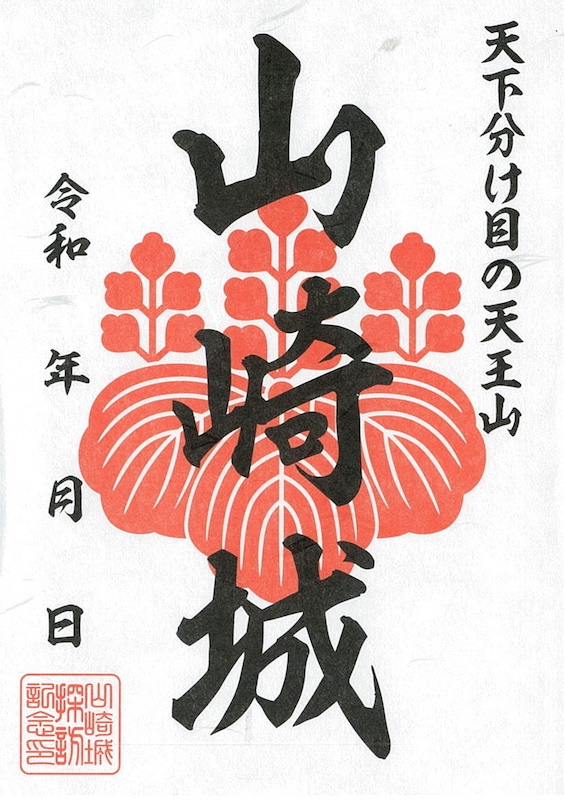 天下分け目の天王山
山崎城
令和 年 月 日
山崎城
探訪
記念印